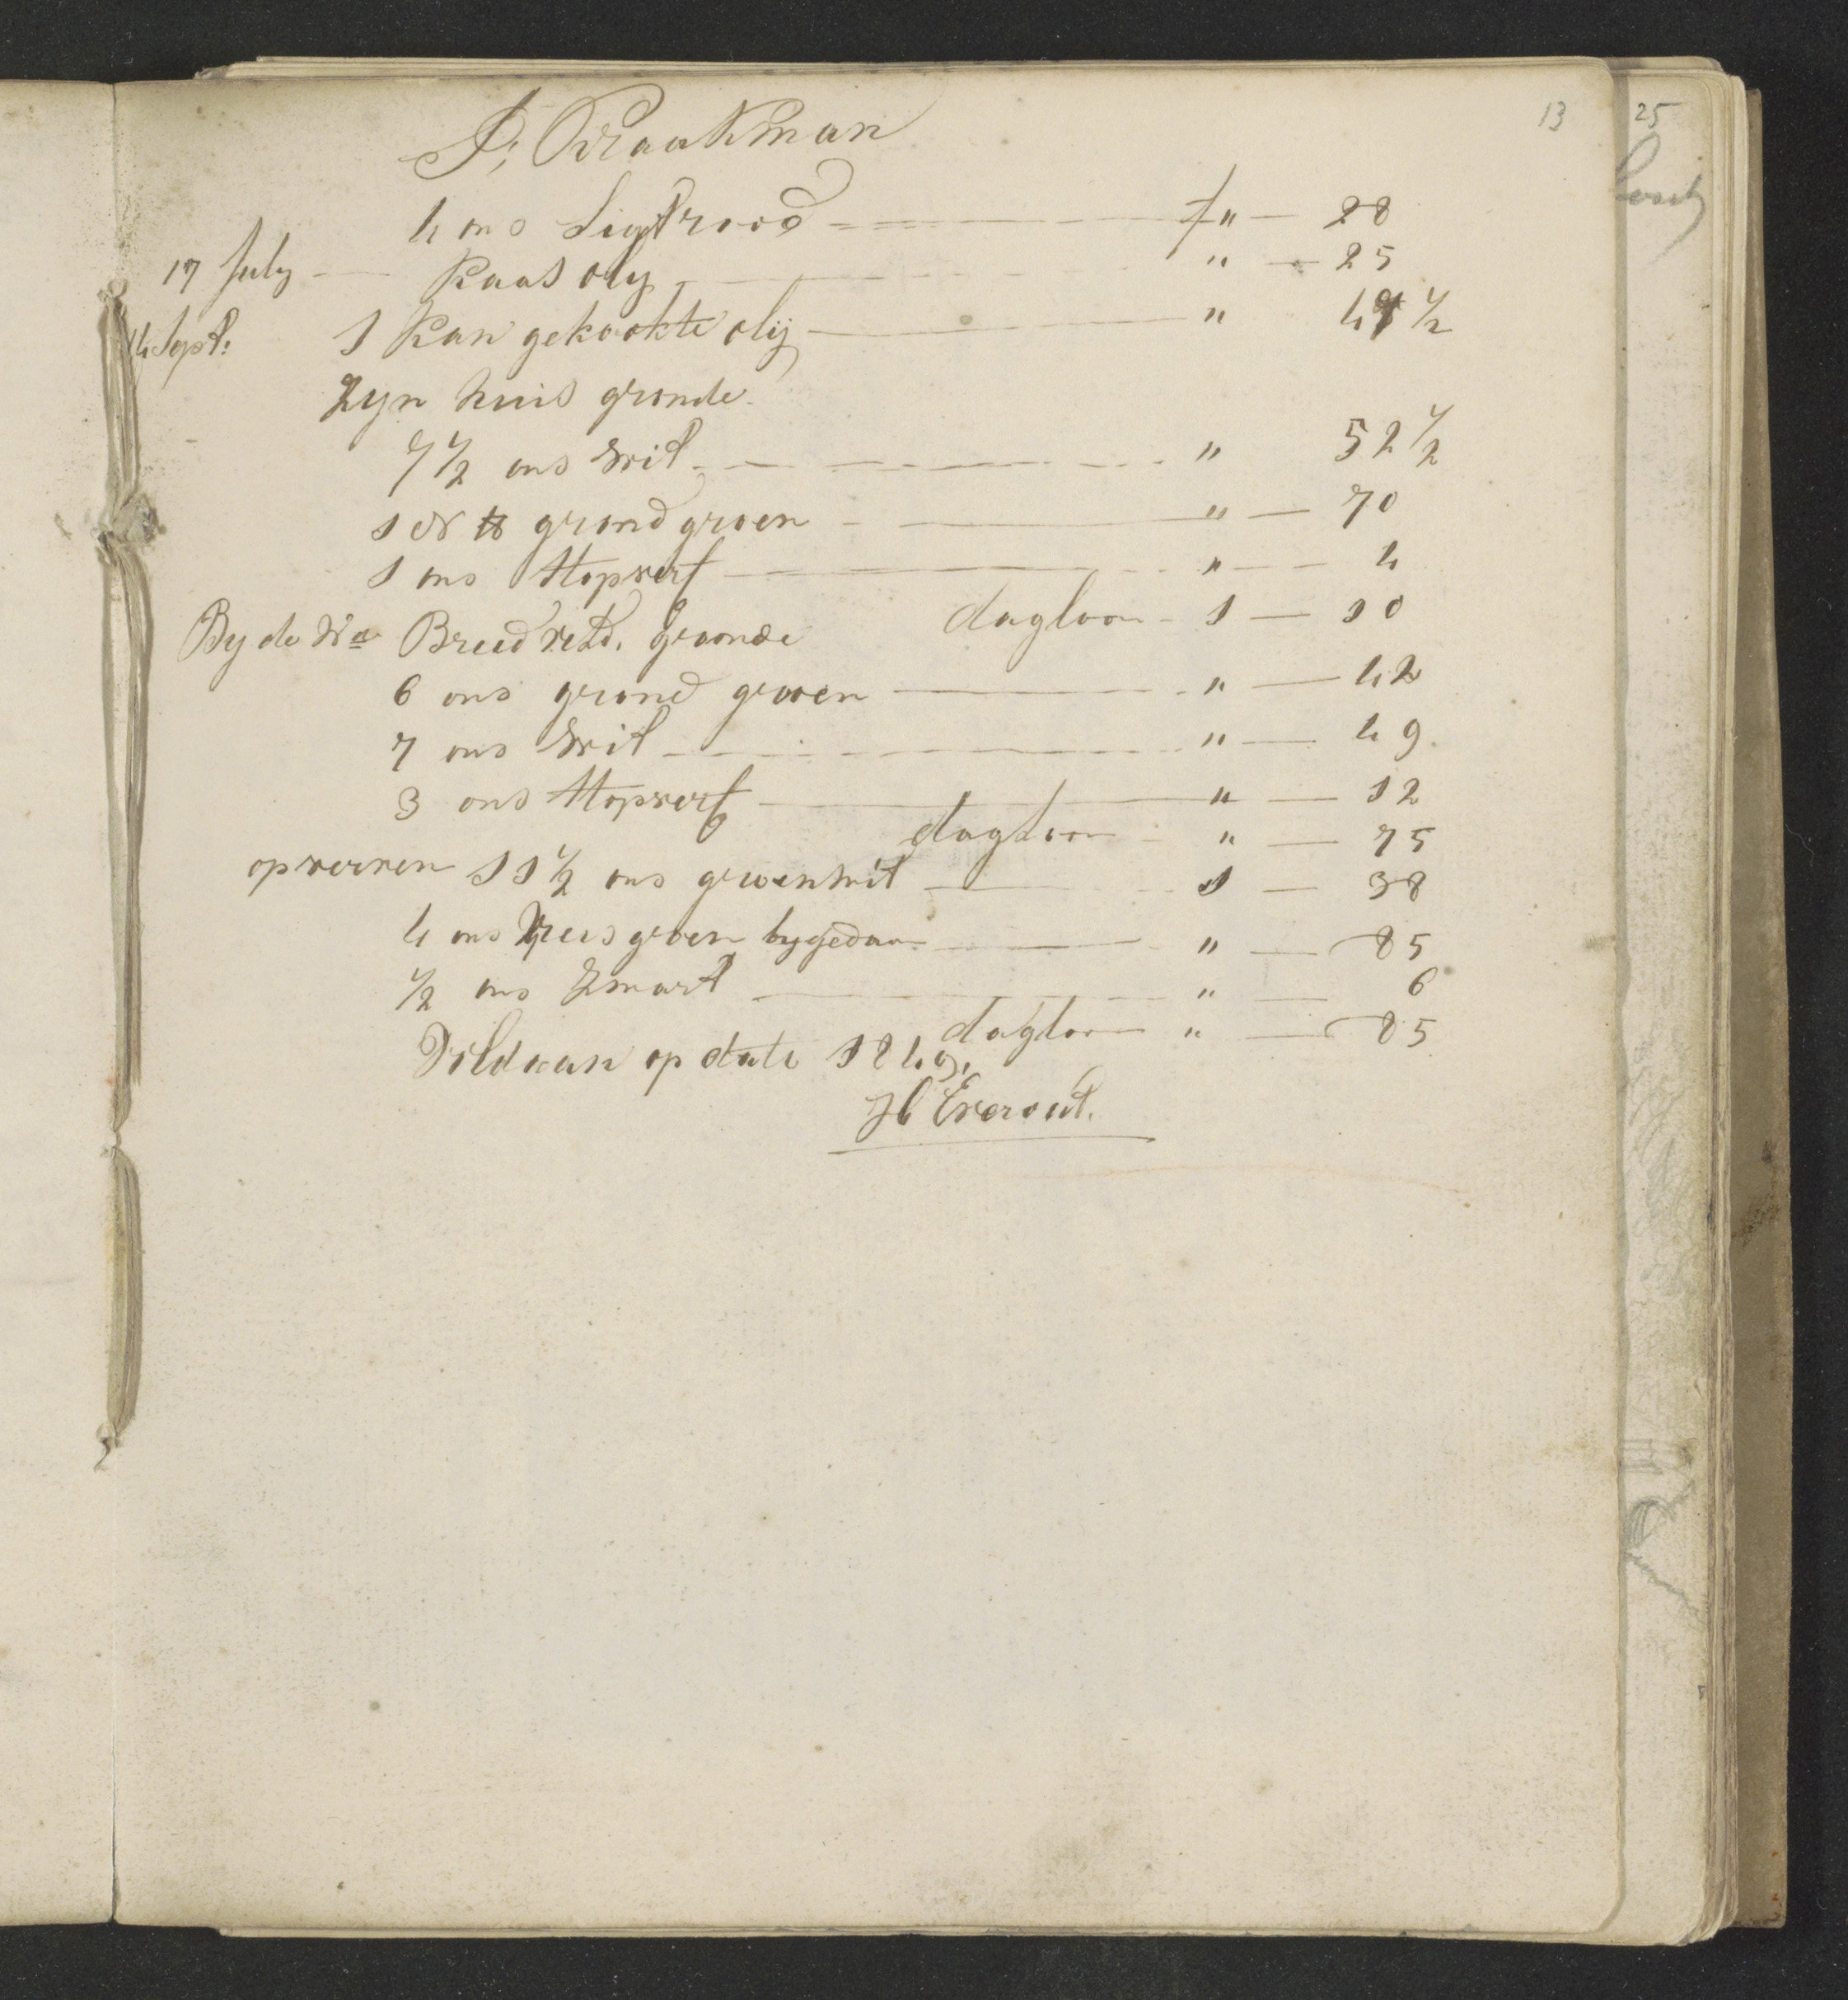 13
25
P; Kraakman
4 ons Ligtrood f " 28
17 July Raas oly " 25
14 Sept: 1 Kan gekookte olij " 47 1/2
Zyn huis gronde
7 1/2 ons wit " 52 1/2
1 N ℔ grond groen " 70
1 ons Stopverf " 4
dagloon 1 10
By de Wa Breedveld. gronde
6 ons grond groen " 42
7 ons wit " 49
3 ons Stopverf " 12
dagloon " 75
opverven 11 1/2 ons groenwit 1 38
4 ons groen bygedaan " 85
1/2 ons Zwart " 6
dagloon " 85
Voldaan op date 1849.
H Everout.